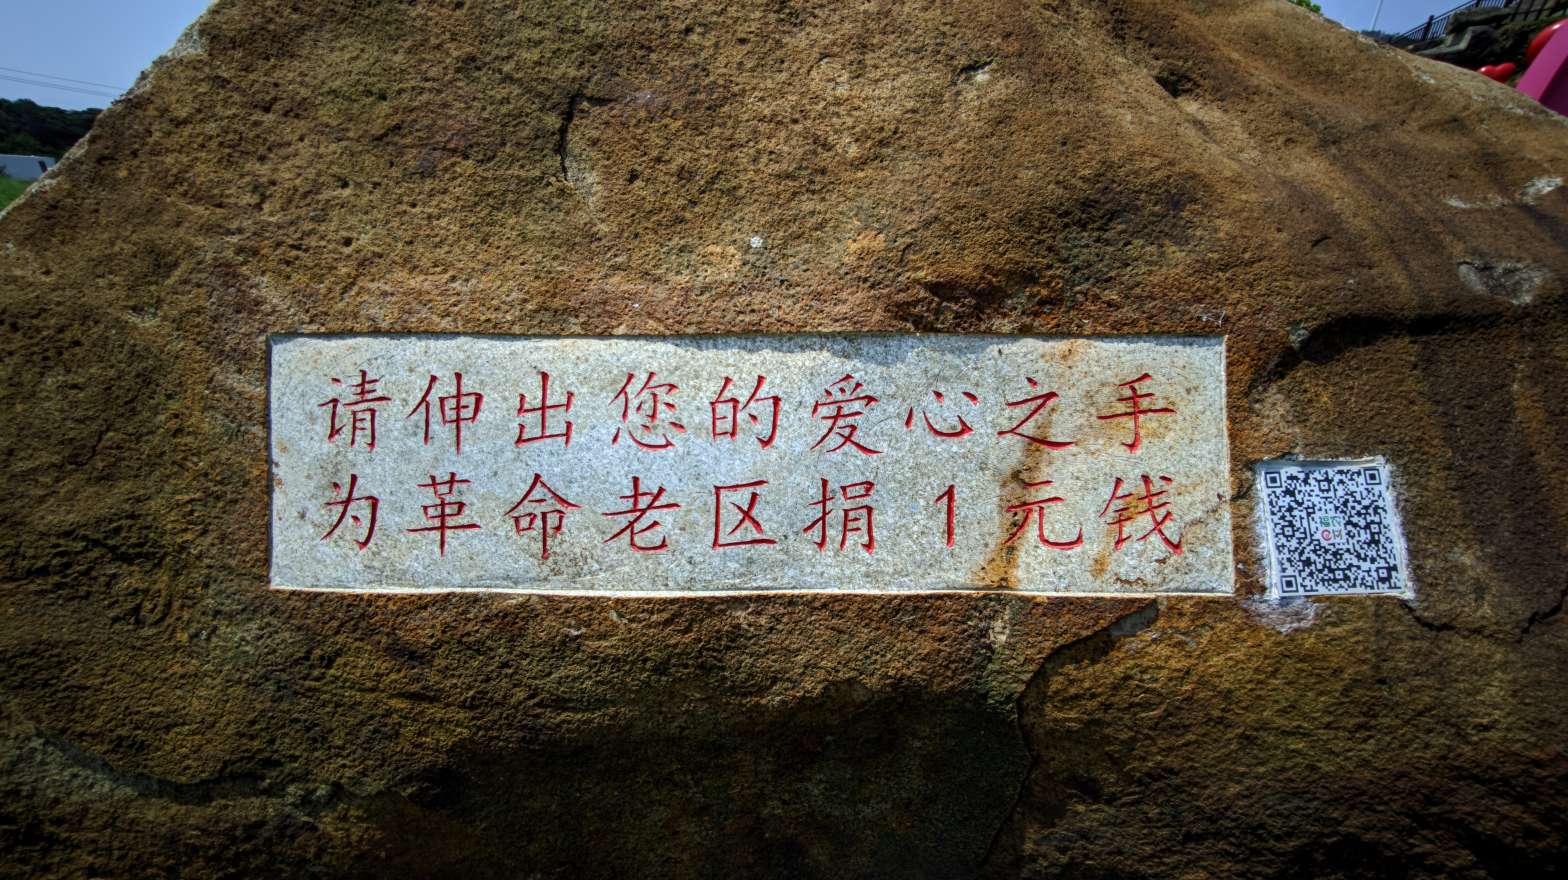 请伸出您的爱心之手
为革命老区捐1元钱